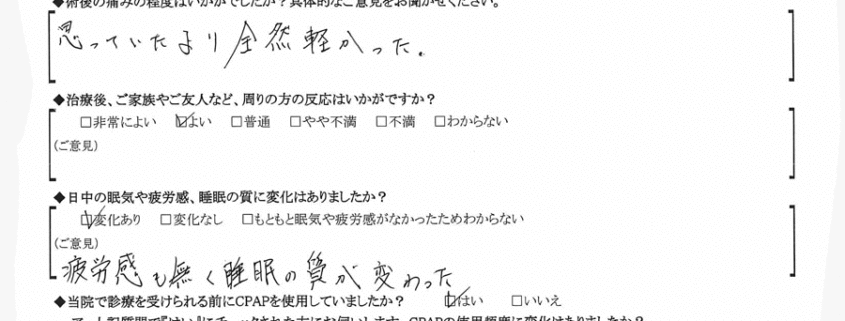 ◆術後の痛みの程度はいかがでしたか？具体的なご意見をお聞かせください。
思っていたより全然軽かった.
◆治療後、ご家族やご友人など、周りの方の反応はいかがですか？
□非常によい ☑よい □普通 □やや不満 □不満 □わからない
(ご意見)
◆日中の眠気や疲労感、睡眠の質に変化はありましたか？
☑変化あり □変化なし □もともと眠気や疲労感がなかったためわからない
(ご意見)
疲労感も無く睡眠の質が変わった
◆当院で診療を受けられる前にCPAPを使用していましたか？ ☑はい □いいえ
上記質問で『はい』にチェックされた方にお伺いします。CPAPの使用頻度に変化はありましたか？